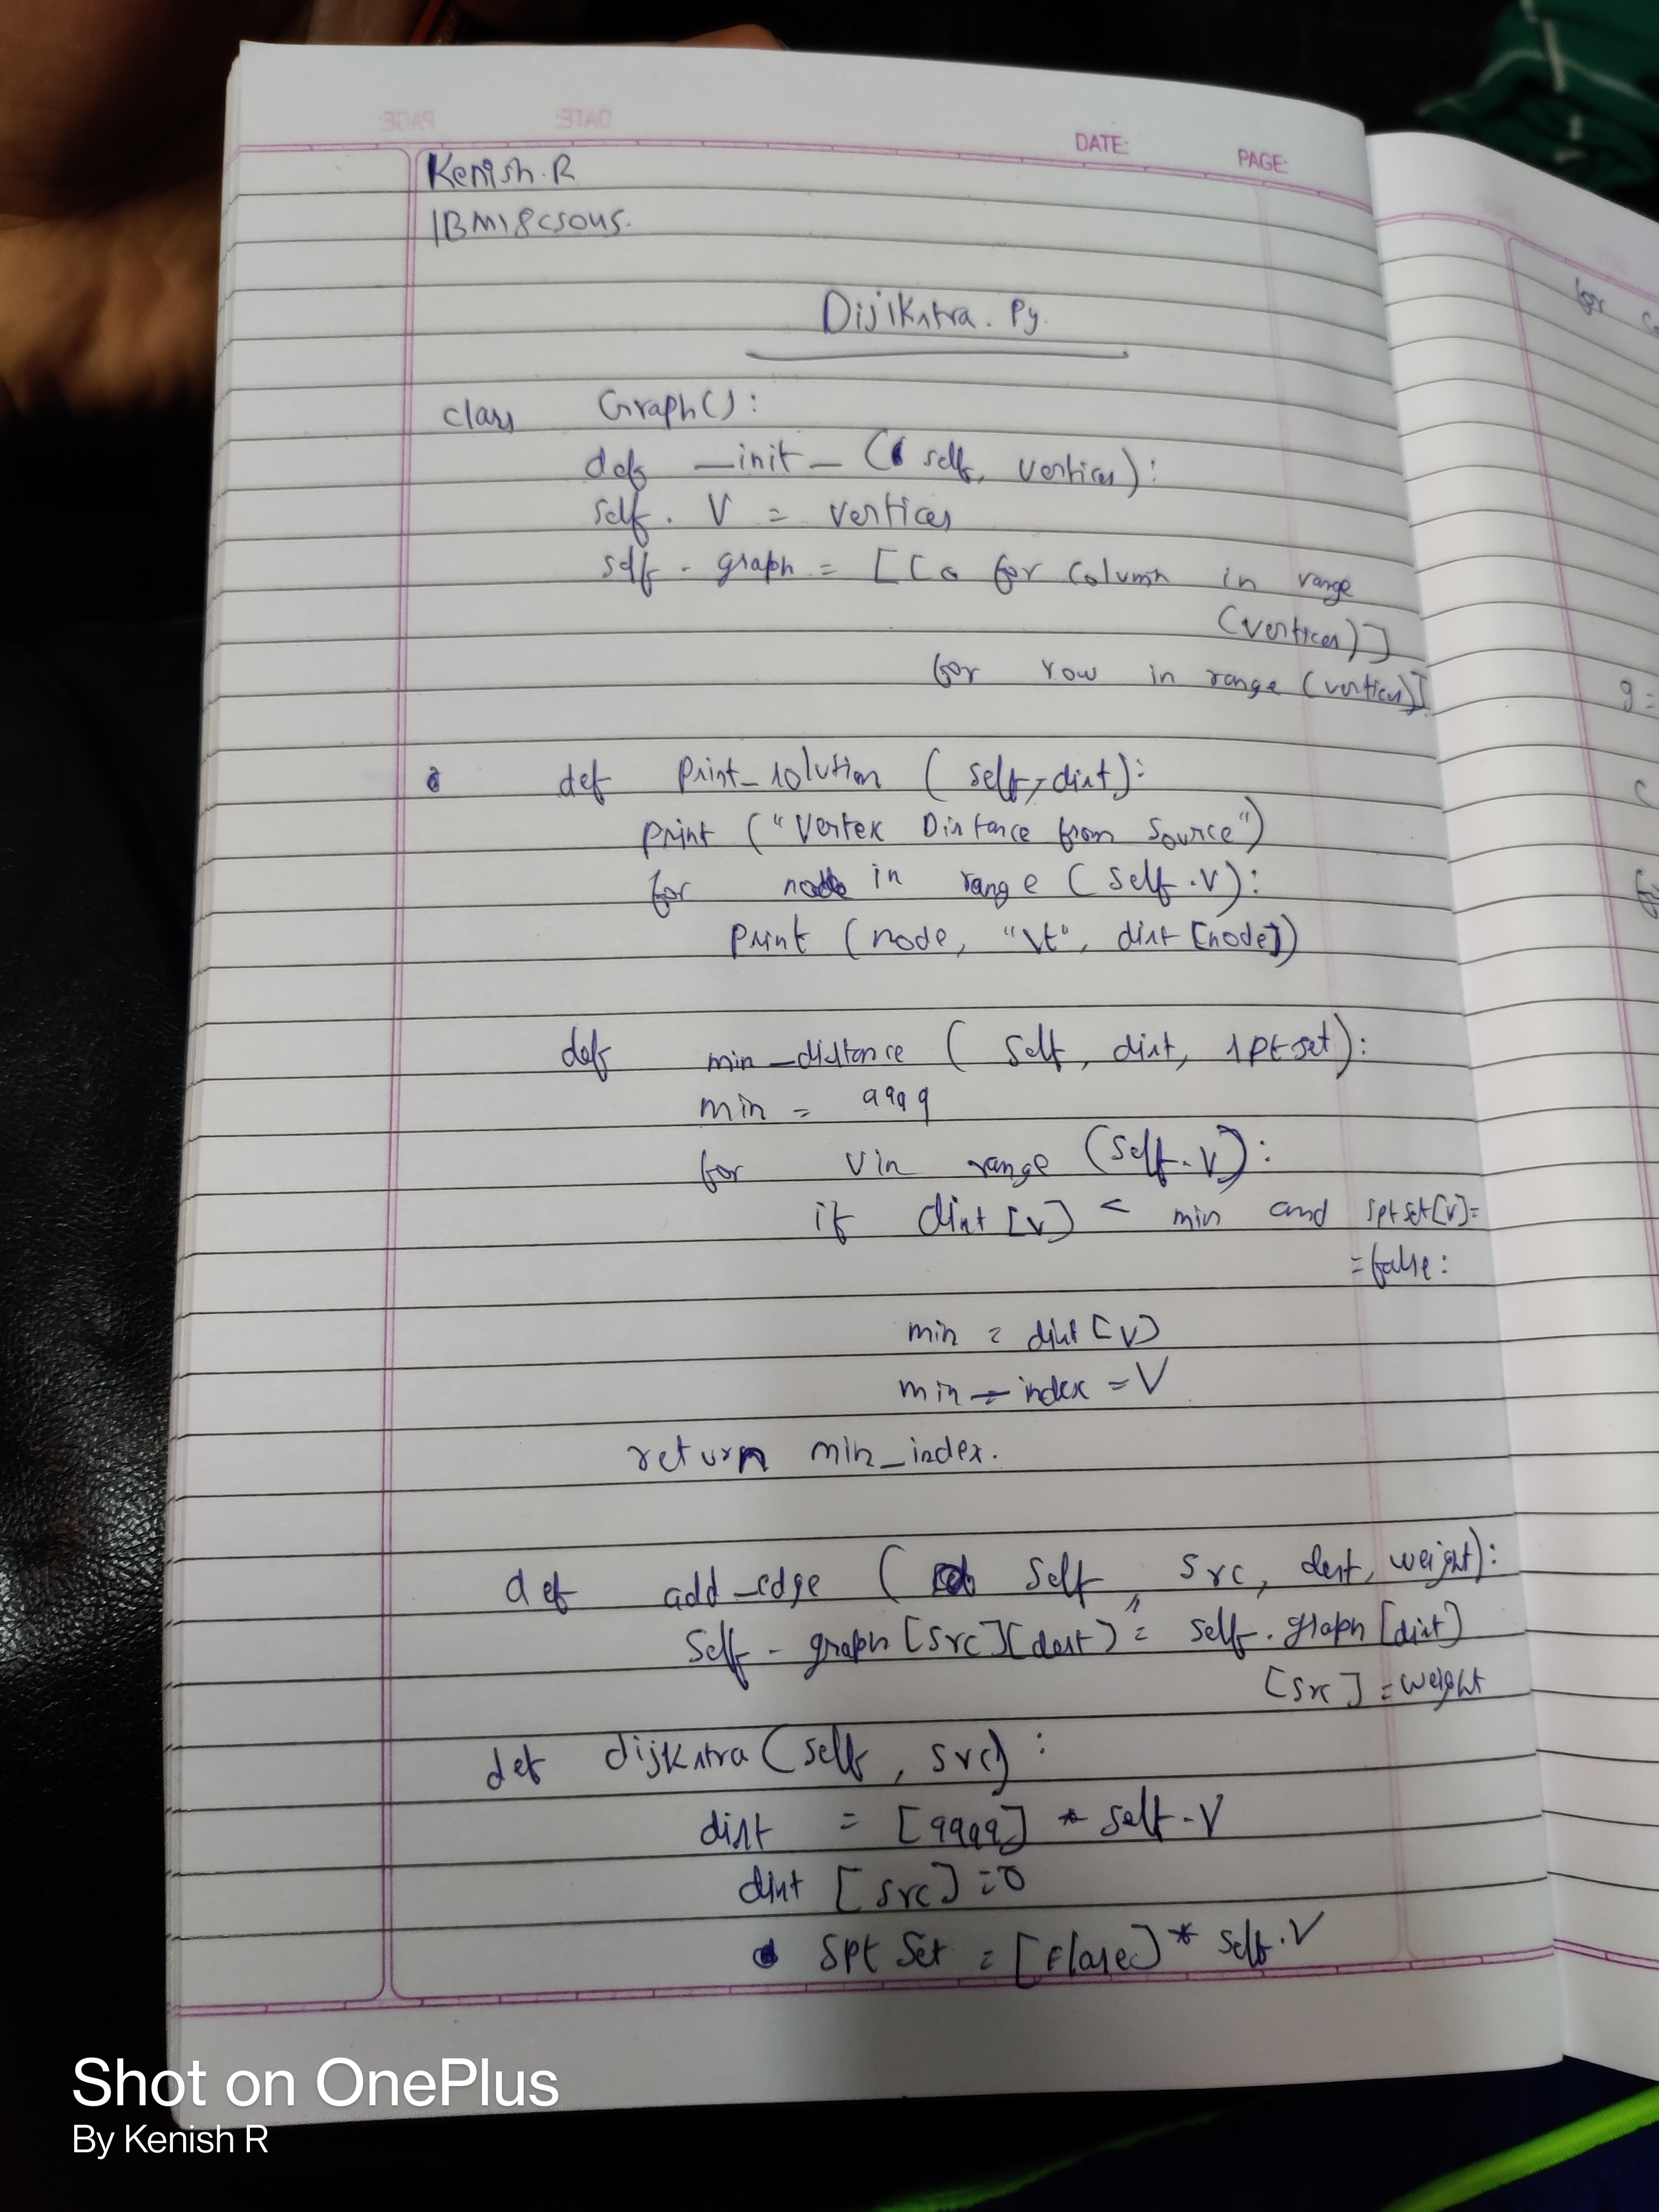 PAGE: DATE:
DATE: PAGE:
Kenish.R
1BM18CS045.
Dijikstra.Py.
class Graph():
def _init_ (self, vertices):
self. V = vertices
self. graph = [[0 for column in range
(vertices)]
for row in range (vertices)]
def print_solution (self, dist):
print ("Vertex Distance from Source")
for node in range (self.V):
print (node, "\t", dist [node])
def min_distance (self, dist, sptset):
min = 9999
for v in range (self.V):
if dist [v] < min and sptset[v]=
=false:
min = dist [v]
min_index = V
return min_index.
def add_edge (self, src, dest, weight):
self. graph [src][dest] = self. graph [dist]
[src] = weight
def dijkstra (self, src):
dist = [9999] * self.V
dist [src] = 0
Spt Set = [Flase] * self.V
for
g =
Shot on OnePlus
By Kenish R